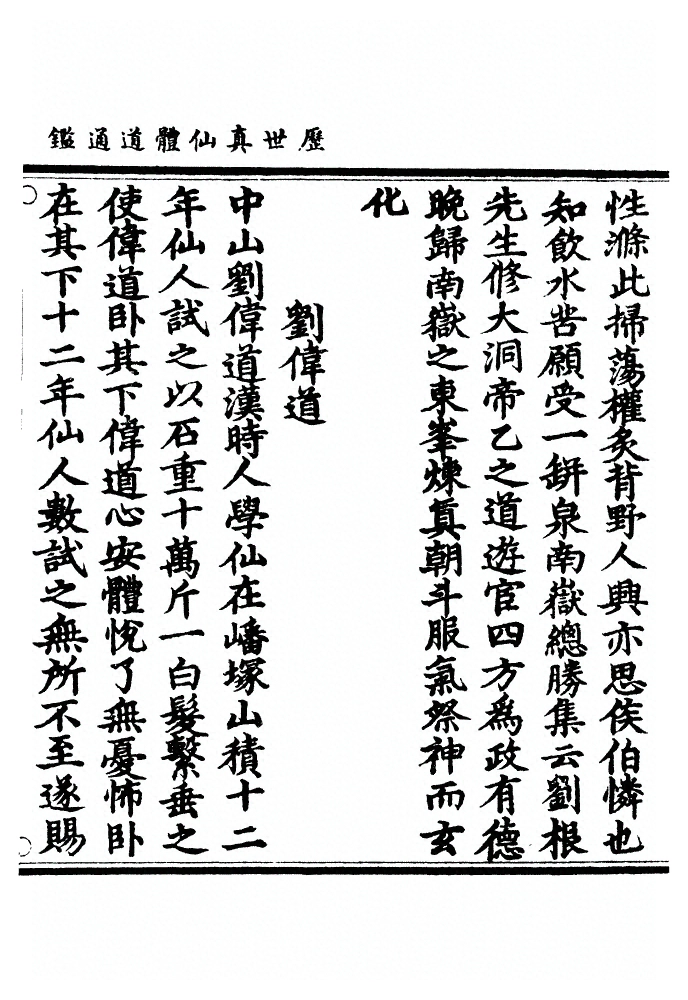 歷世真仙體道通鑑
性滌此掃蕩權炙背野人興亦思侯伯憐也
知飲水苦願受一缾泉南嶽總勝集云劉根
先生修大洞帝乙之道遊官四方為政有德
晚歸南嶽之東峯煉真朝斗服氣祭神而玄
化
劉偉道
中山劉偉道漢時人學仙在嶓塚山積十二
年仙人試之以石重十萬斤一白髮繫垂之
使偉道卧其下偉道心安體悅了無憂怖卧
在其下十二年仙人數試之無所不至遂賜